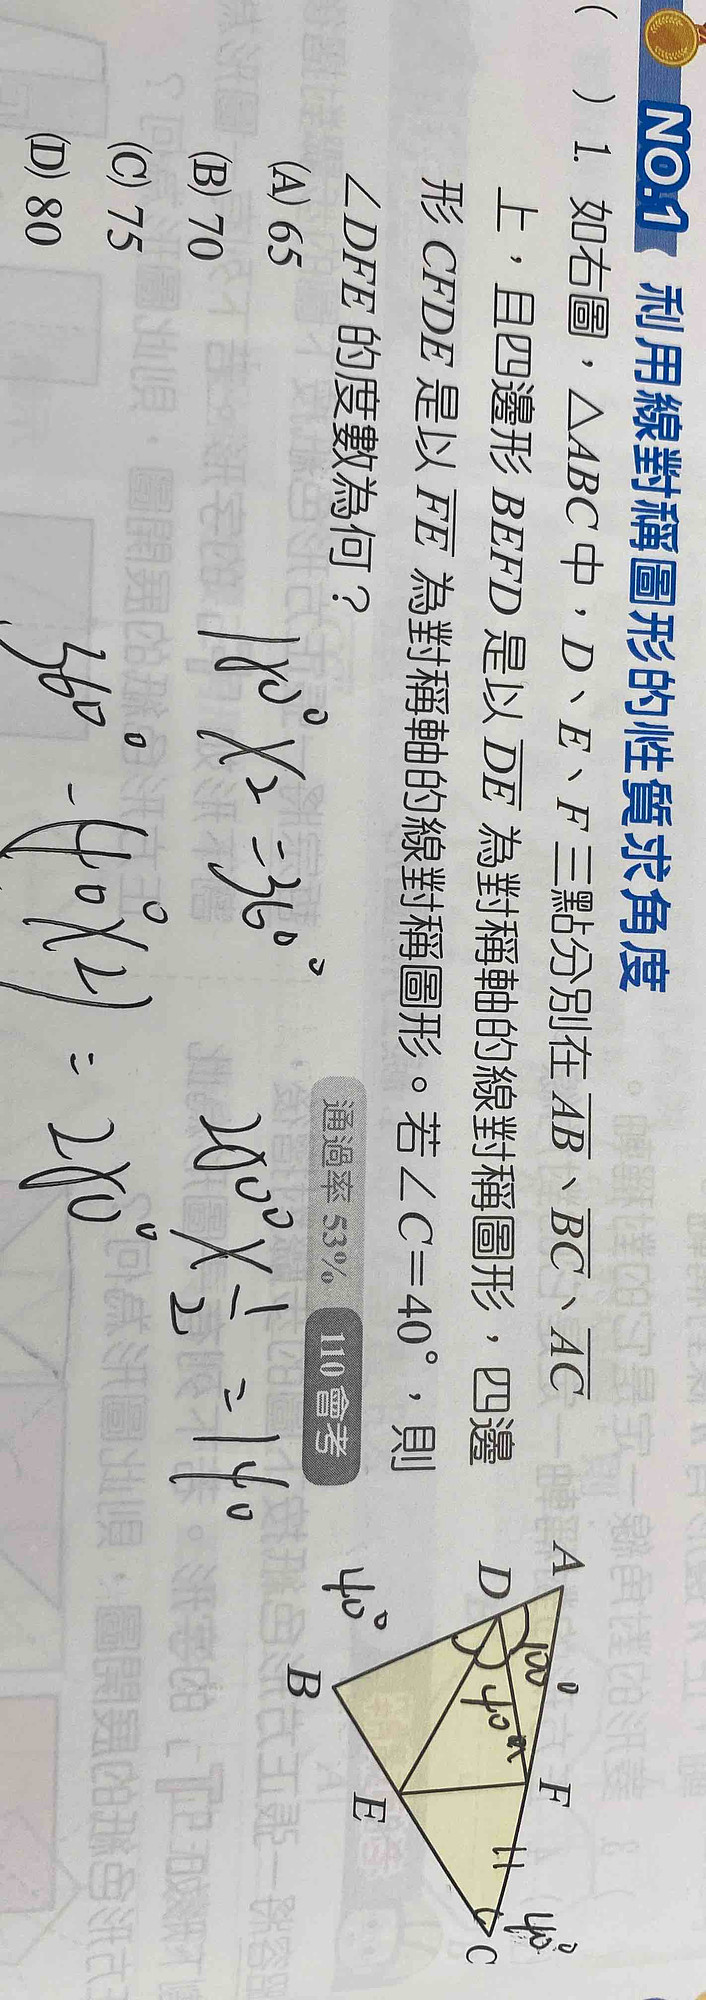 NO.1 利用線對稱圖形的性質求角度
( ) 1. 如右圖，△ABC中，D、E、F三點分別在AB、BC、AC
上，且四邊形BEFD是以DE為對稱軸的線對稱圖形，四邊
形CFDE是以FE為對稱軸的線對稱圖形。若∠C=40°，則
∠DFE的度數為何？
通過率 53% 110會考
(A) 65
(B) 70
(C) 75
(D) 80
180° × 2 = 360°
360° - 40° × 2) = 280°
280° × 1/2 = 140
A
D
100°
40°
F
B
40°
E
C
40°